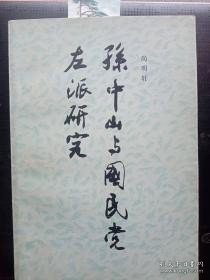 尚明轩
孫中山与國民党
左派研究